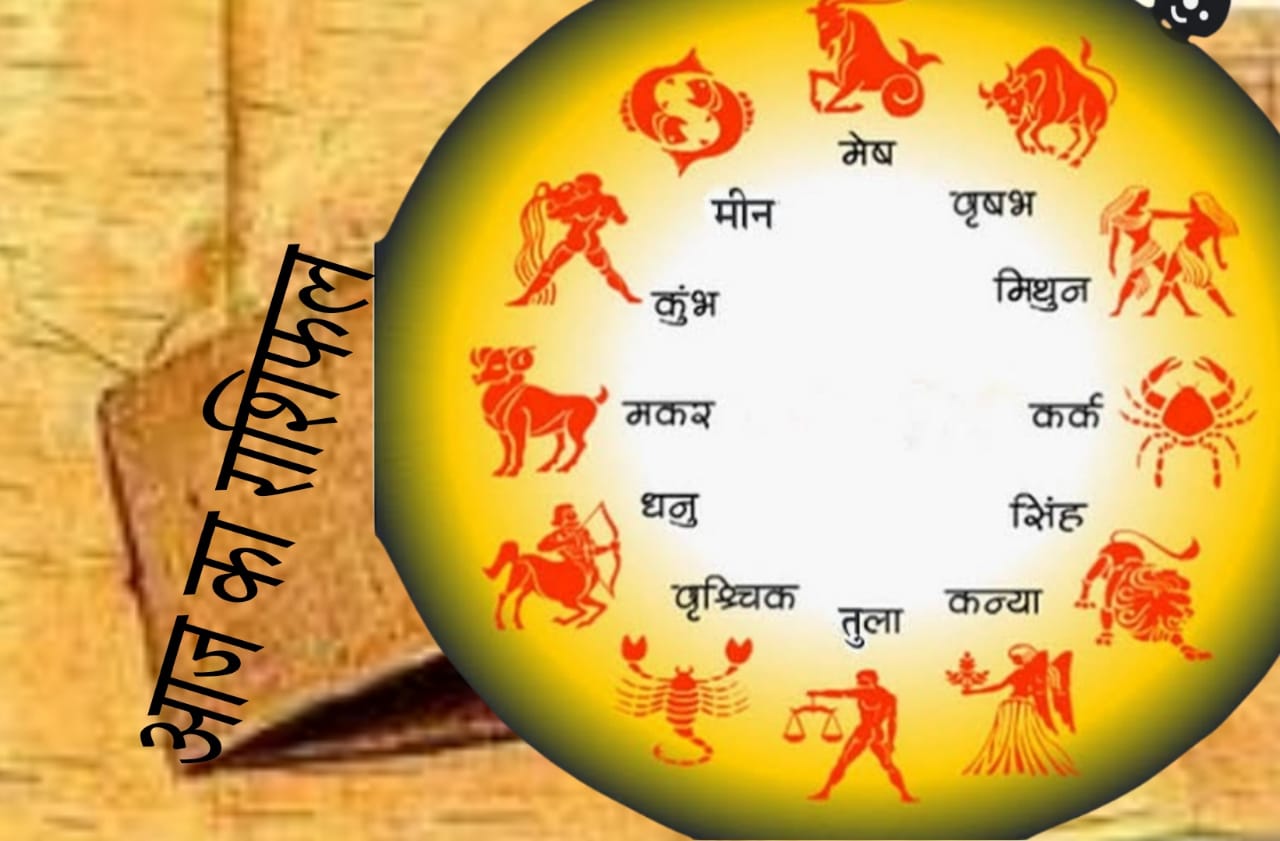 आज का राशिफल
मेष
वृषभ
मिथुन
कर्क
सिंह
कन्या
तुला
वृश्चिक
धनु
मकर
कुंभ
मीन